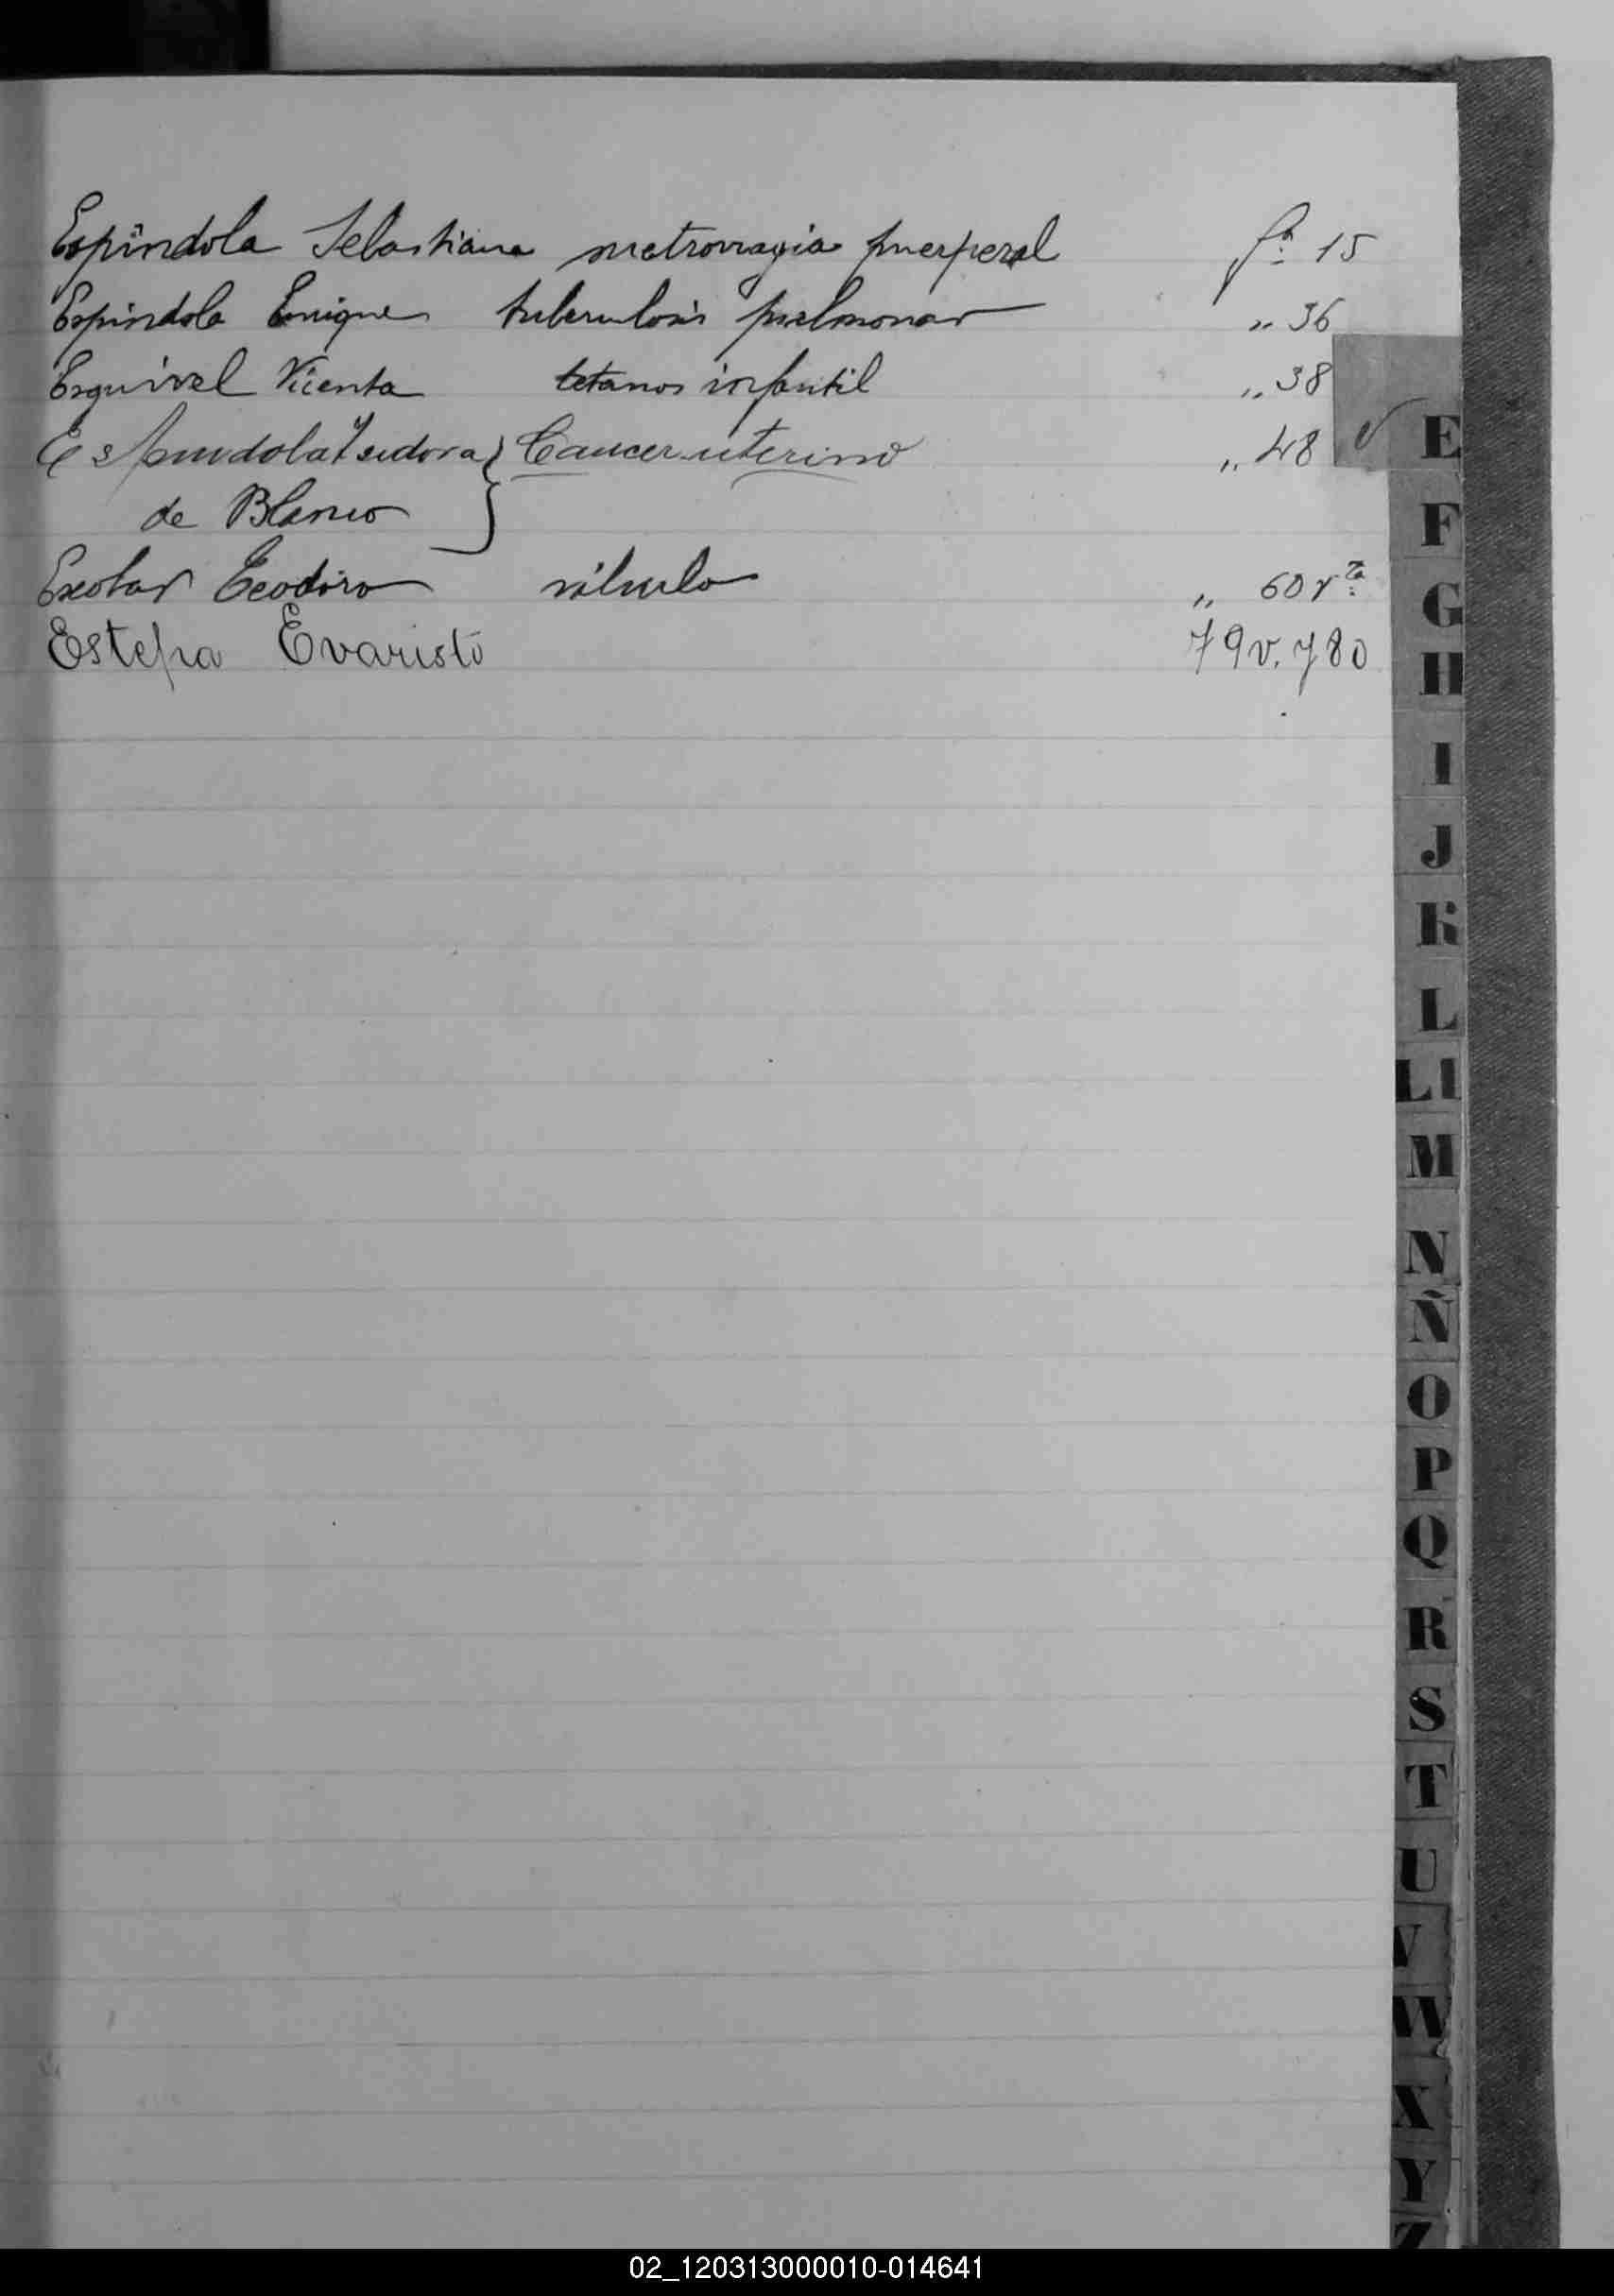 Espíndola Sebastiana metrorragia puerperal fª 15
Espindola Enrique tuberculosis pulmonar " 36
Esquivel Vicenta tetanos infantil " 38
Espindola Isidora } Cancer uterino " 48
de Blanco
Escobar Teodoro vólvulo " 60 vta
Estepa Evaristo 79v. y 80
E
F
G
H
I
J
K
L
Ll
M
N
Ñ
O
P
Q
R
S
T
U
V
W
X
Y
Z
02_120313000010-014641